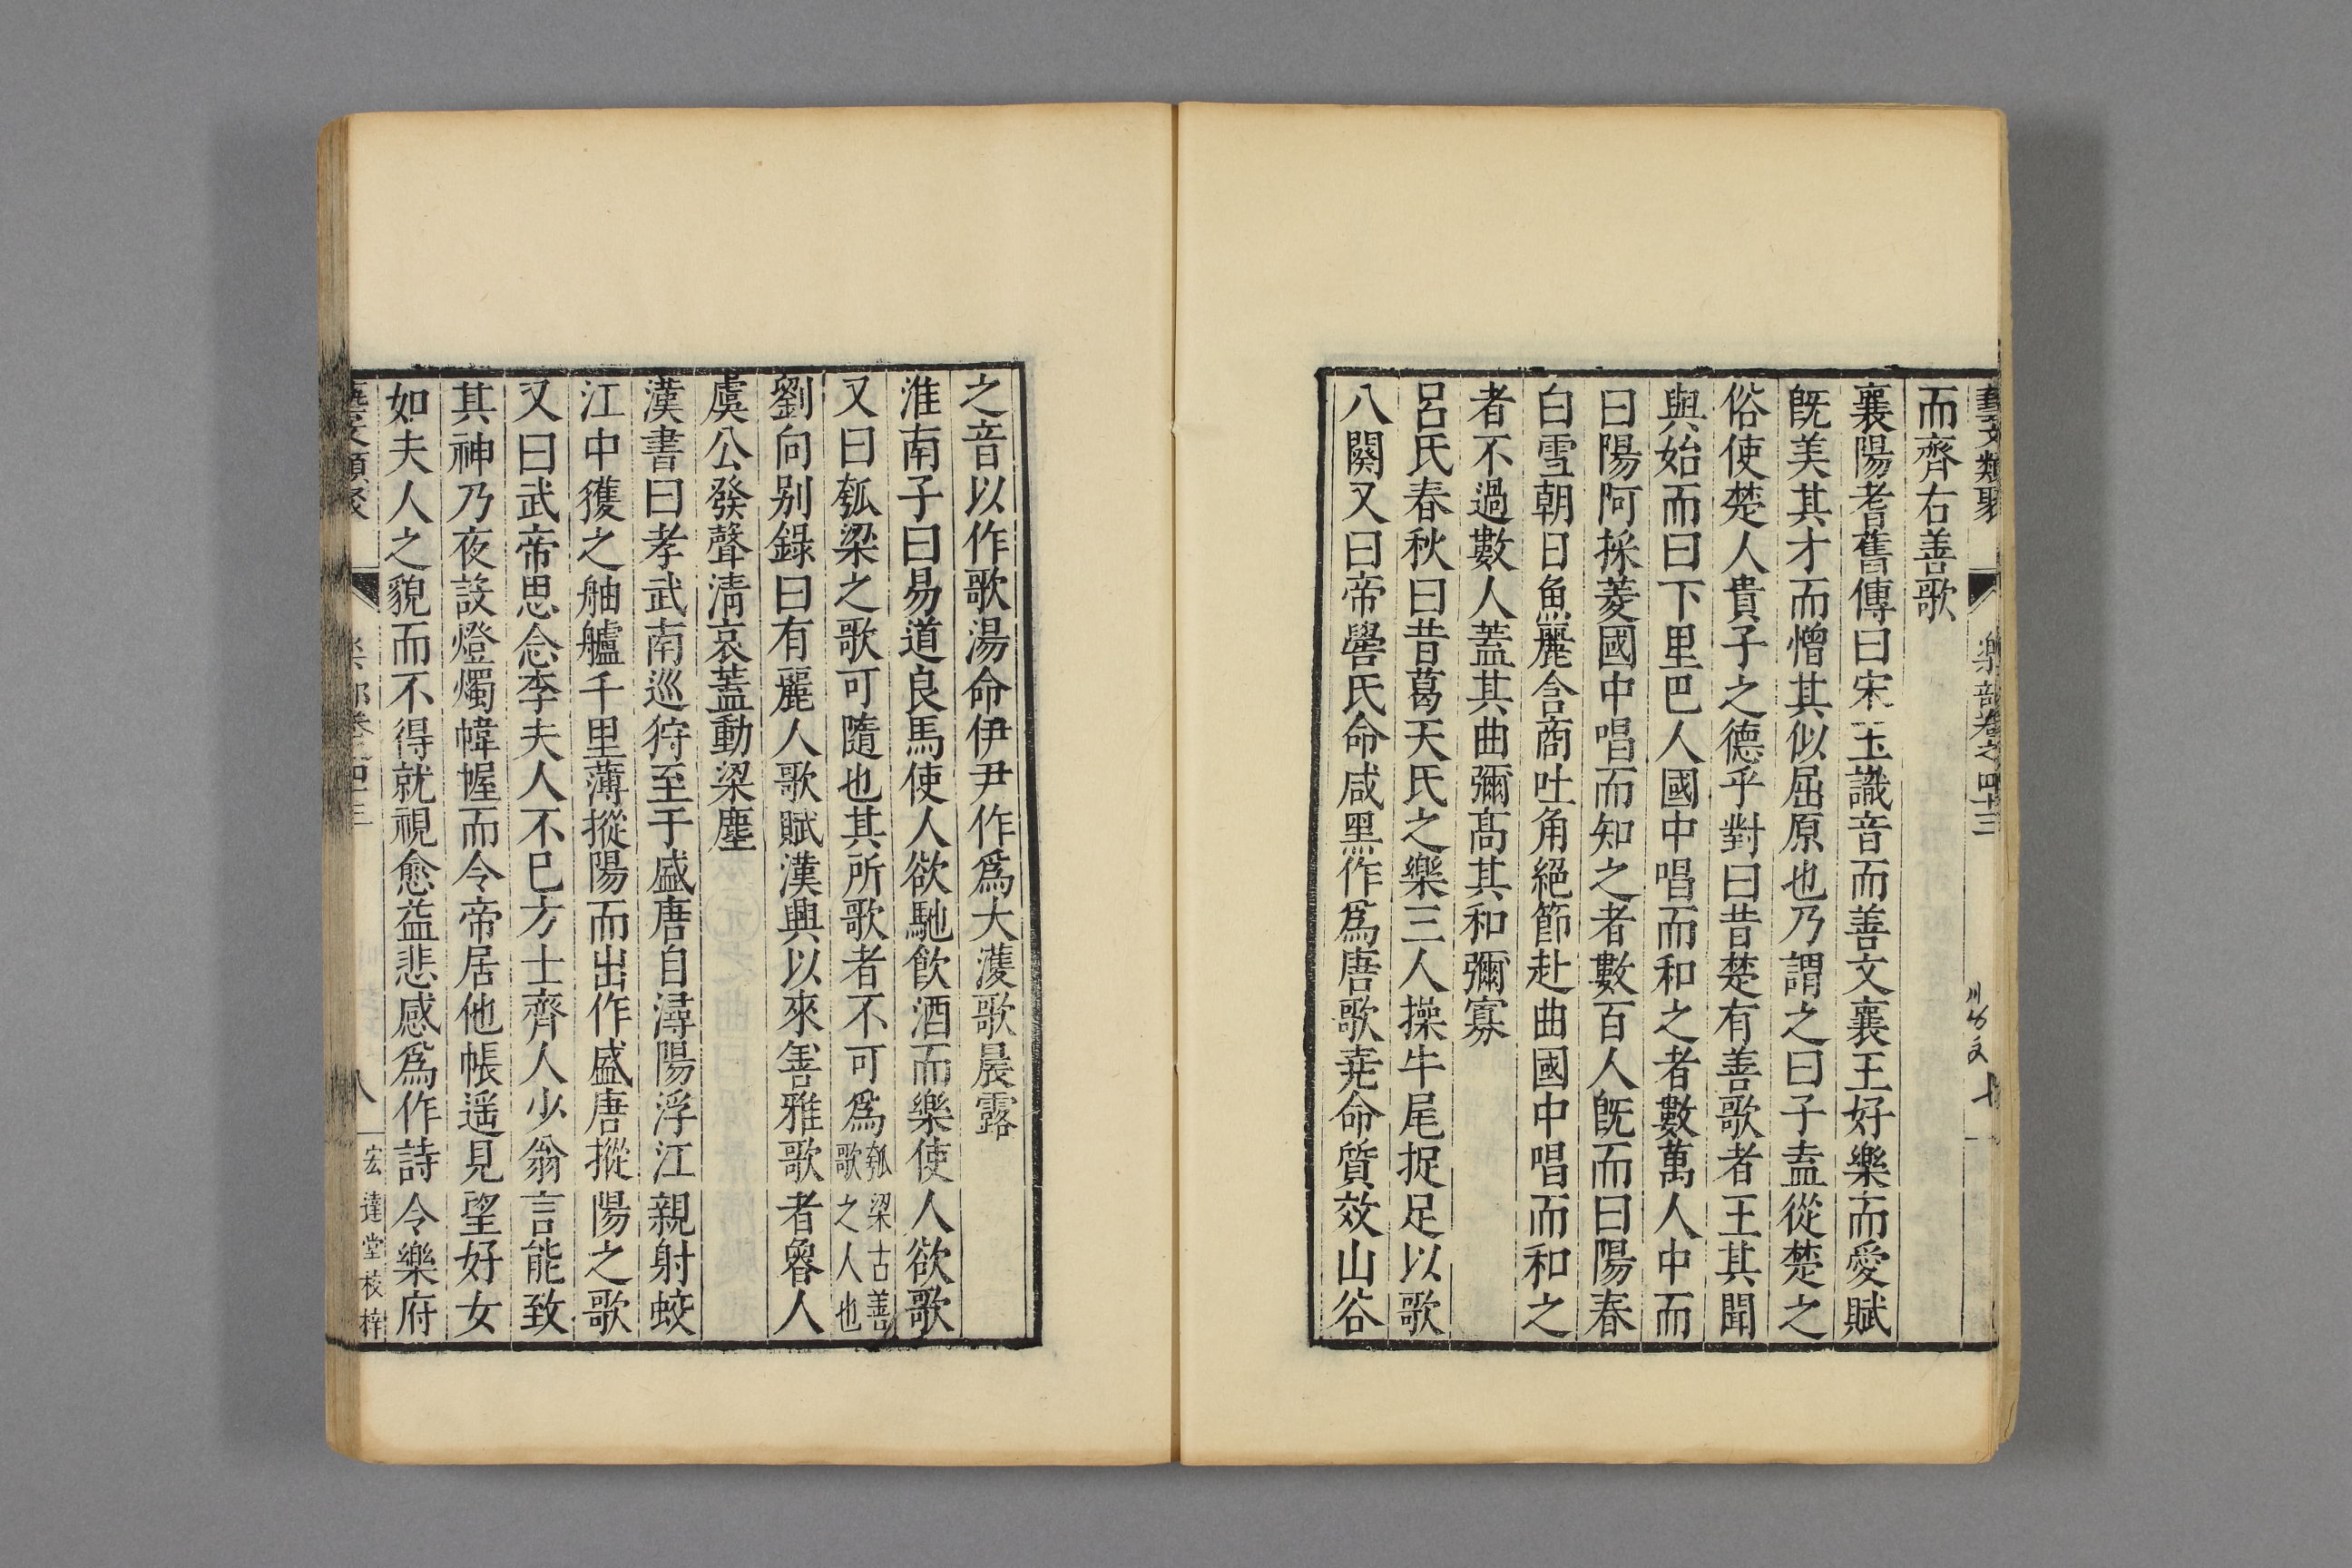 藝文類聚
樂部卷之四十三
而齊右善歌
襄陽耆舊傳曰宋玉識音而善文襄王好樂而愛賦
旣美其才而憎其似屈原也乃謂之曰子盍從楚之
俗使楚人貴子之德乎對曰昔楚有善歌者王其聞
與始而曰下里巴人國中唱而和之者數萬人中而
曰陽阿採菱國中唱而知之者數百人旣而曰陽春
白雪朝日魚麗含商吐角絕節赴曲國中唱而和之
者不過數人蓋其曲彌髙其和彌寡
呂氏春秋曰昔葛天氏之樂三人操牛尾捉足以歌
八闋又曰帝嚳氏命咸黑作爲唐歌堯命質效山谷
之音以作歌湯命伊尹作爲大濩歌晨露
淮南子曰易道良馬使人欲馳飮酒而樂使人欲歌
又曰瓠梁之歌可隨也其所歌者不可爲瓠梁古善歌之人也
劉向别錄曰有麗人歌賦漢興以來善雅歌者魯人
虞公發聲淸哀蓋動梁塵
漢書曰孝武南巡狩至于盛唐自潯陽浮江親射蛟
江中獲之舳艫千里薄摐陽而出作盛唐摐陽之歌
又曰武帝思念李夫人不巳方士齊人少翁言能致
其神乃夜設燈燭幃幄而令帝居他帳遥見望好女
如夫人之貌而不得就視愈益悲感爲作詩令樂府
藝文類聚
樂部卷之四十三
八
宏達堂校梓